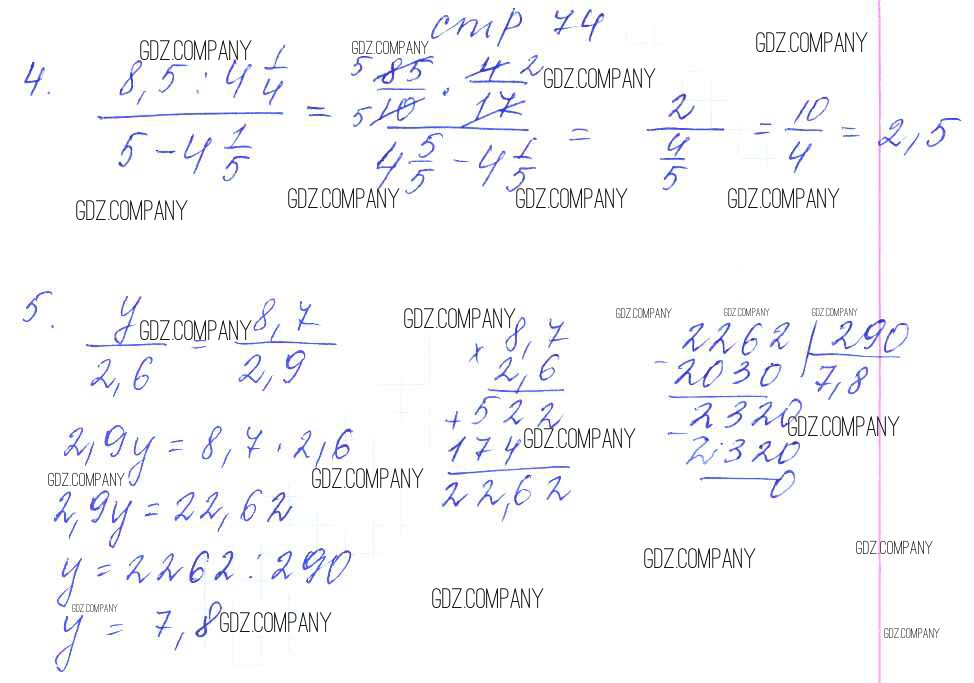 стр 74
4. (8,5 : 4 1/4) / (5 - 4 1/5) = (85/10 · 4/17) / (4 5/5 - 4 1/5) = 2 / (4/5) = 10/4 = 2,5
5 5 2
GDZ.COMPANY GDZ.COMPANY GDZ.COMPANY GDZ.COMPANY
GDZ.COMPANY GDZ.COMPANY GDZ.COMPANY GDZ.COMPANY
5. y/2,6 = 8,7/2,9
GDZ.COMPANY GDZ.COMPANY GDZ.COMPANY GDZ.COMPANY GDZ.COMPANY
2,9y = 8,7 · 2,6
2,9y = 22,62
y = 2262 : 290
y = 7,8
× 8,7
2,6
+ 522
174
22,62
2262 | 290
- 2030 | 7,8
2320
- 2320
0
GDZ.COMPANY GDZ.COMPANY GDZ.COMPANY GDZ.COMPANY
GDZ.COMPANY GDZ.COMPANY GDZ.COMPANY
GDZ.COMPANY GDZ.COMPANY GDZ.COMPANY